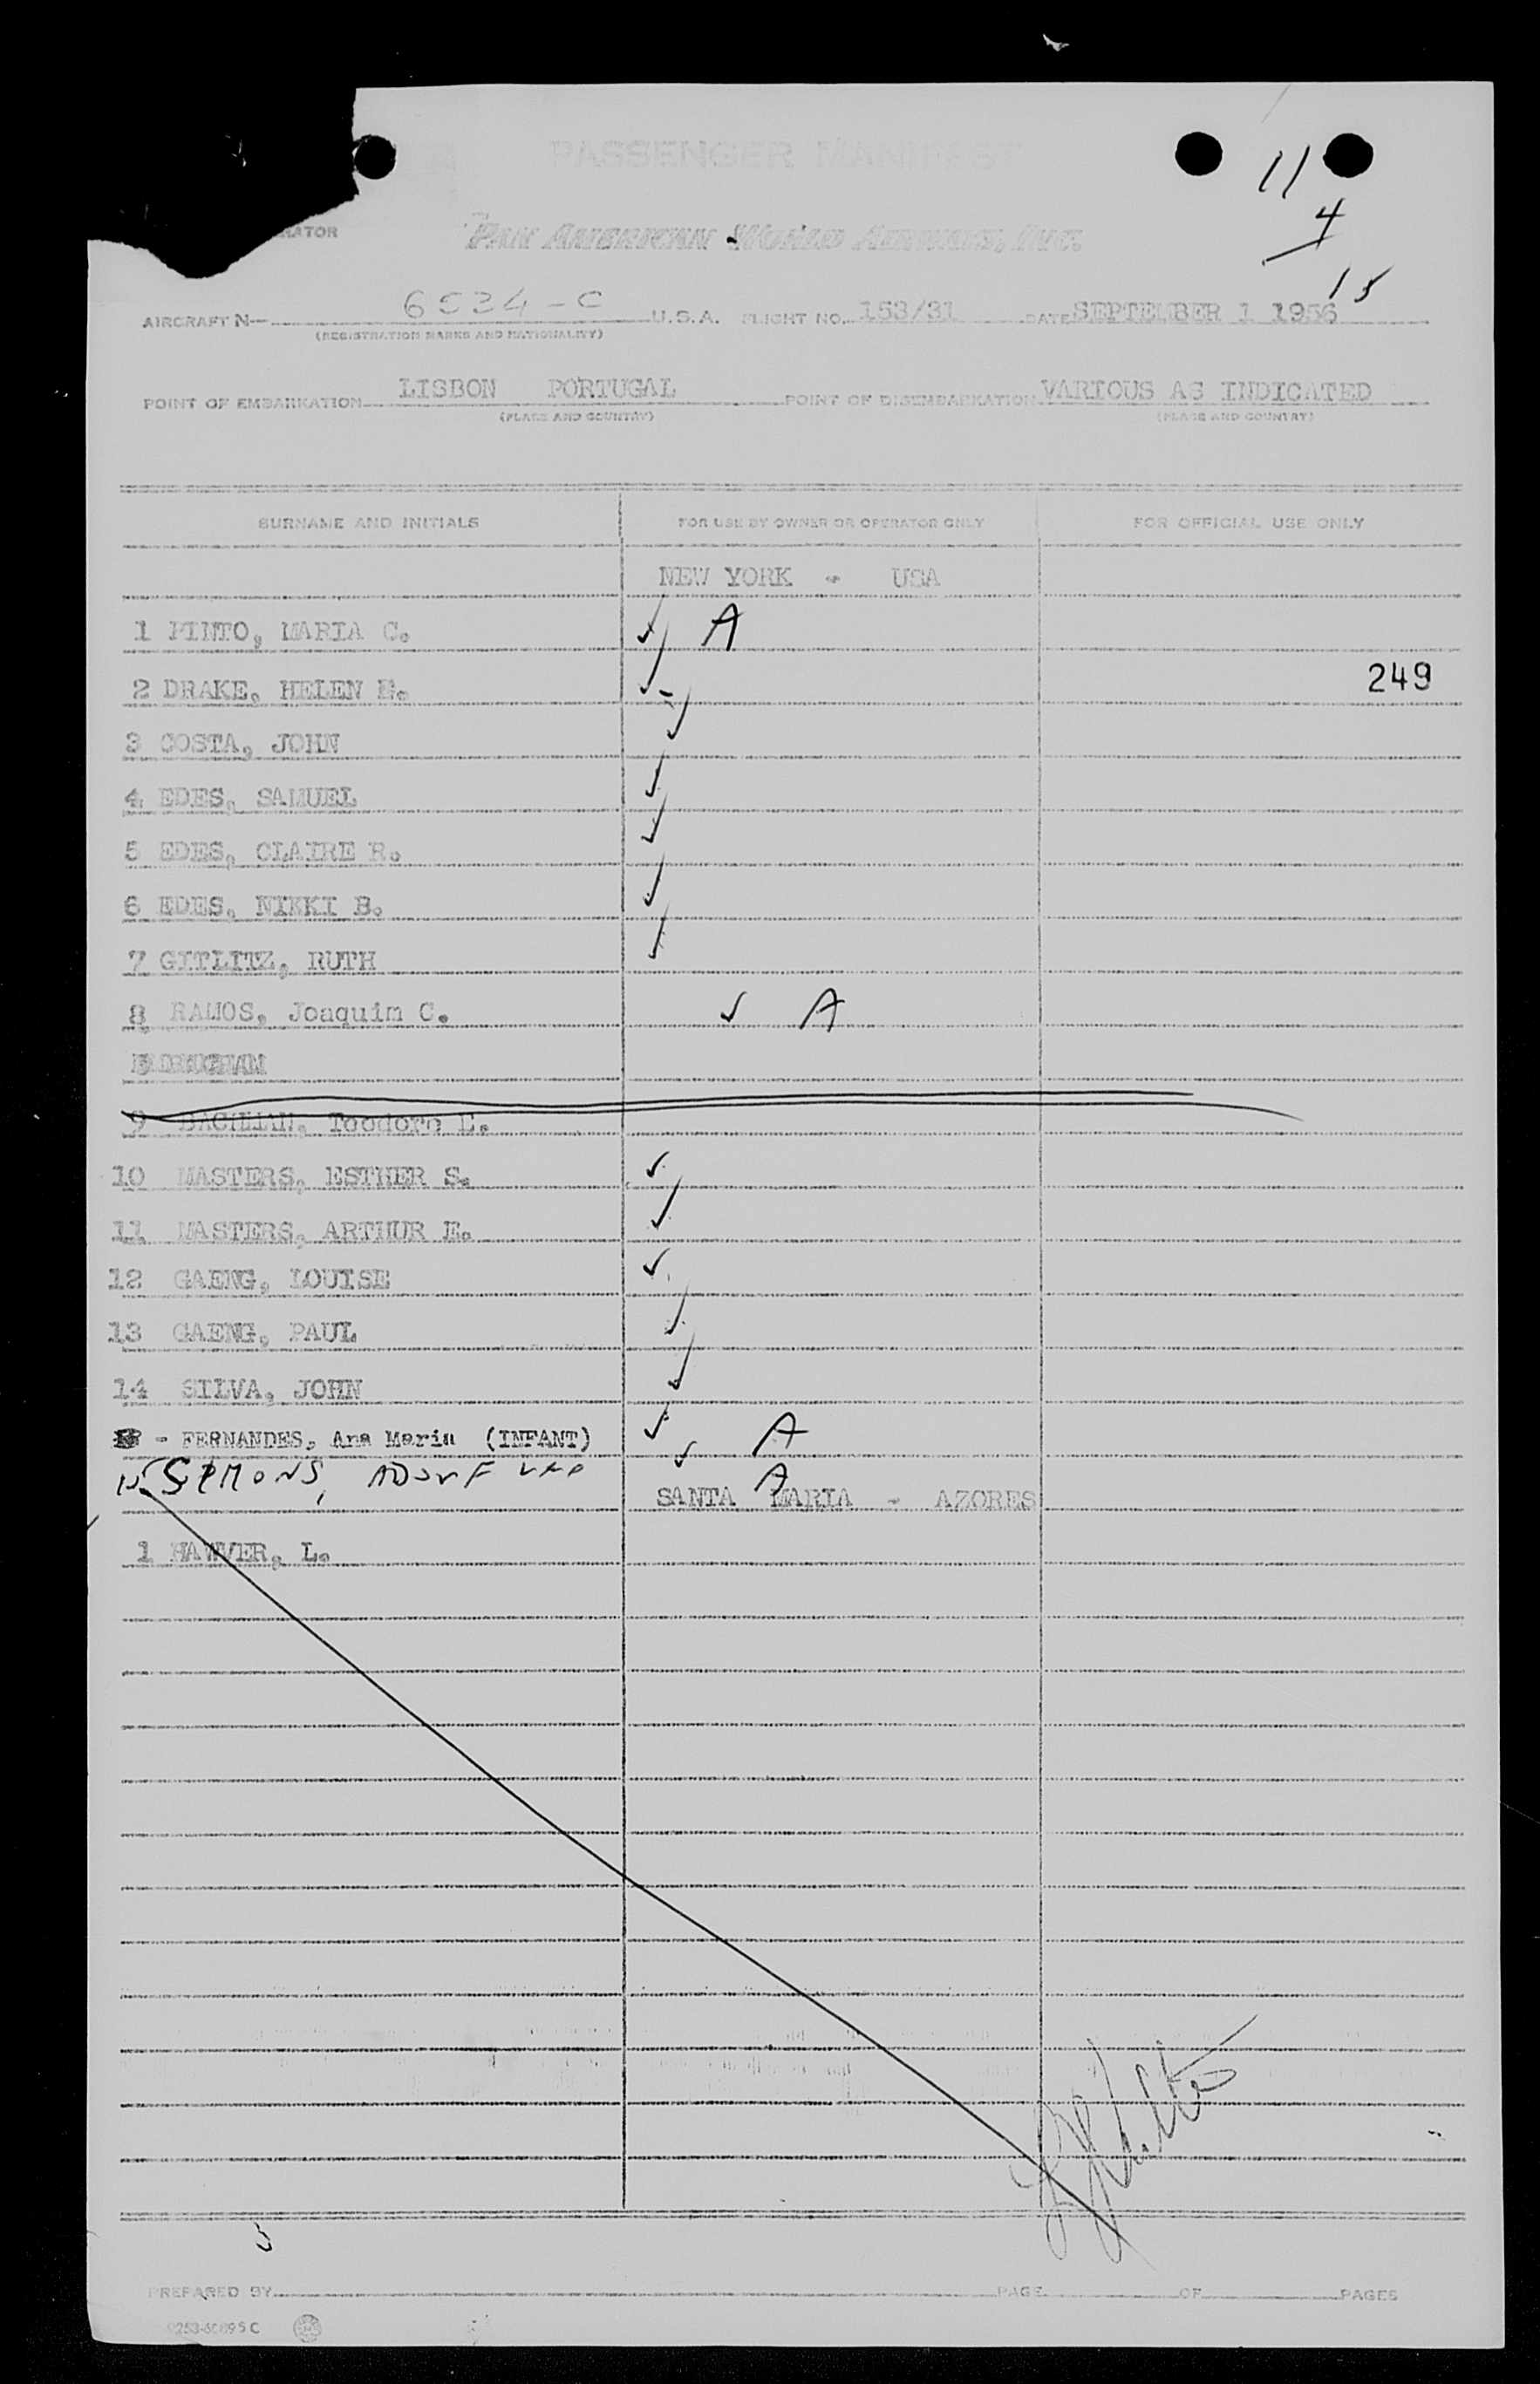 PASSENGER MANIFEST
11
4
15
RATOR PAN AMERICAN WORLD AIRWAYS, INC.
AIRCRAFT N— 6524-C U.S.A. FLIGHT NO. 153/31 DATE SEPTEMBER 1 1956
(REGISTRATION MARKS AND NATIONALITY)
POINT OF EMBARKATION LISBON PORTUGAL POINT OF DISEMBARKATION VARIOUS AS INDICATED
(PLACE AND COUNTRY) (PLACE AND COUNTRY)
SURNAME AND INITIALS FOR USE BY OWNER OR OPERATOR ONLY FOR OFFICIAL USE ONLY
NEW YORK - USA
1 PINTO, MARIA C. ✓ A
2 DRAKE, HELEN E. ✓ 249
3 COSTA, JOHN ✓
4 EDES, SAMUEL ✓
5 EDES, CLAIRE R. ✓
6 EDES, NIKKI B. ✓
7 GITLITZ, RUTH ✓
8 RAMOS, Joaquim C. ✓ A
9 BACHMAN, Teodoro E.
10 MASTERS, ESTHER S. ✓
11 MASTERS, ARTHUR E. ✓
12 GAENG, LOUISE ✓
13 GAENG, PAUL ✓
14 SILVA, JOHN ✓
- FERNANDES, Ana Maria (INFANT) ✓ A
15 SIMONS, ADOLF ✓ A
SANTA MARIA - AZORES
1 HAWVER, L.
PREPARED BY PAGE OF PAGES